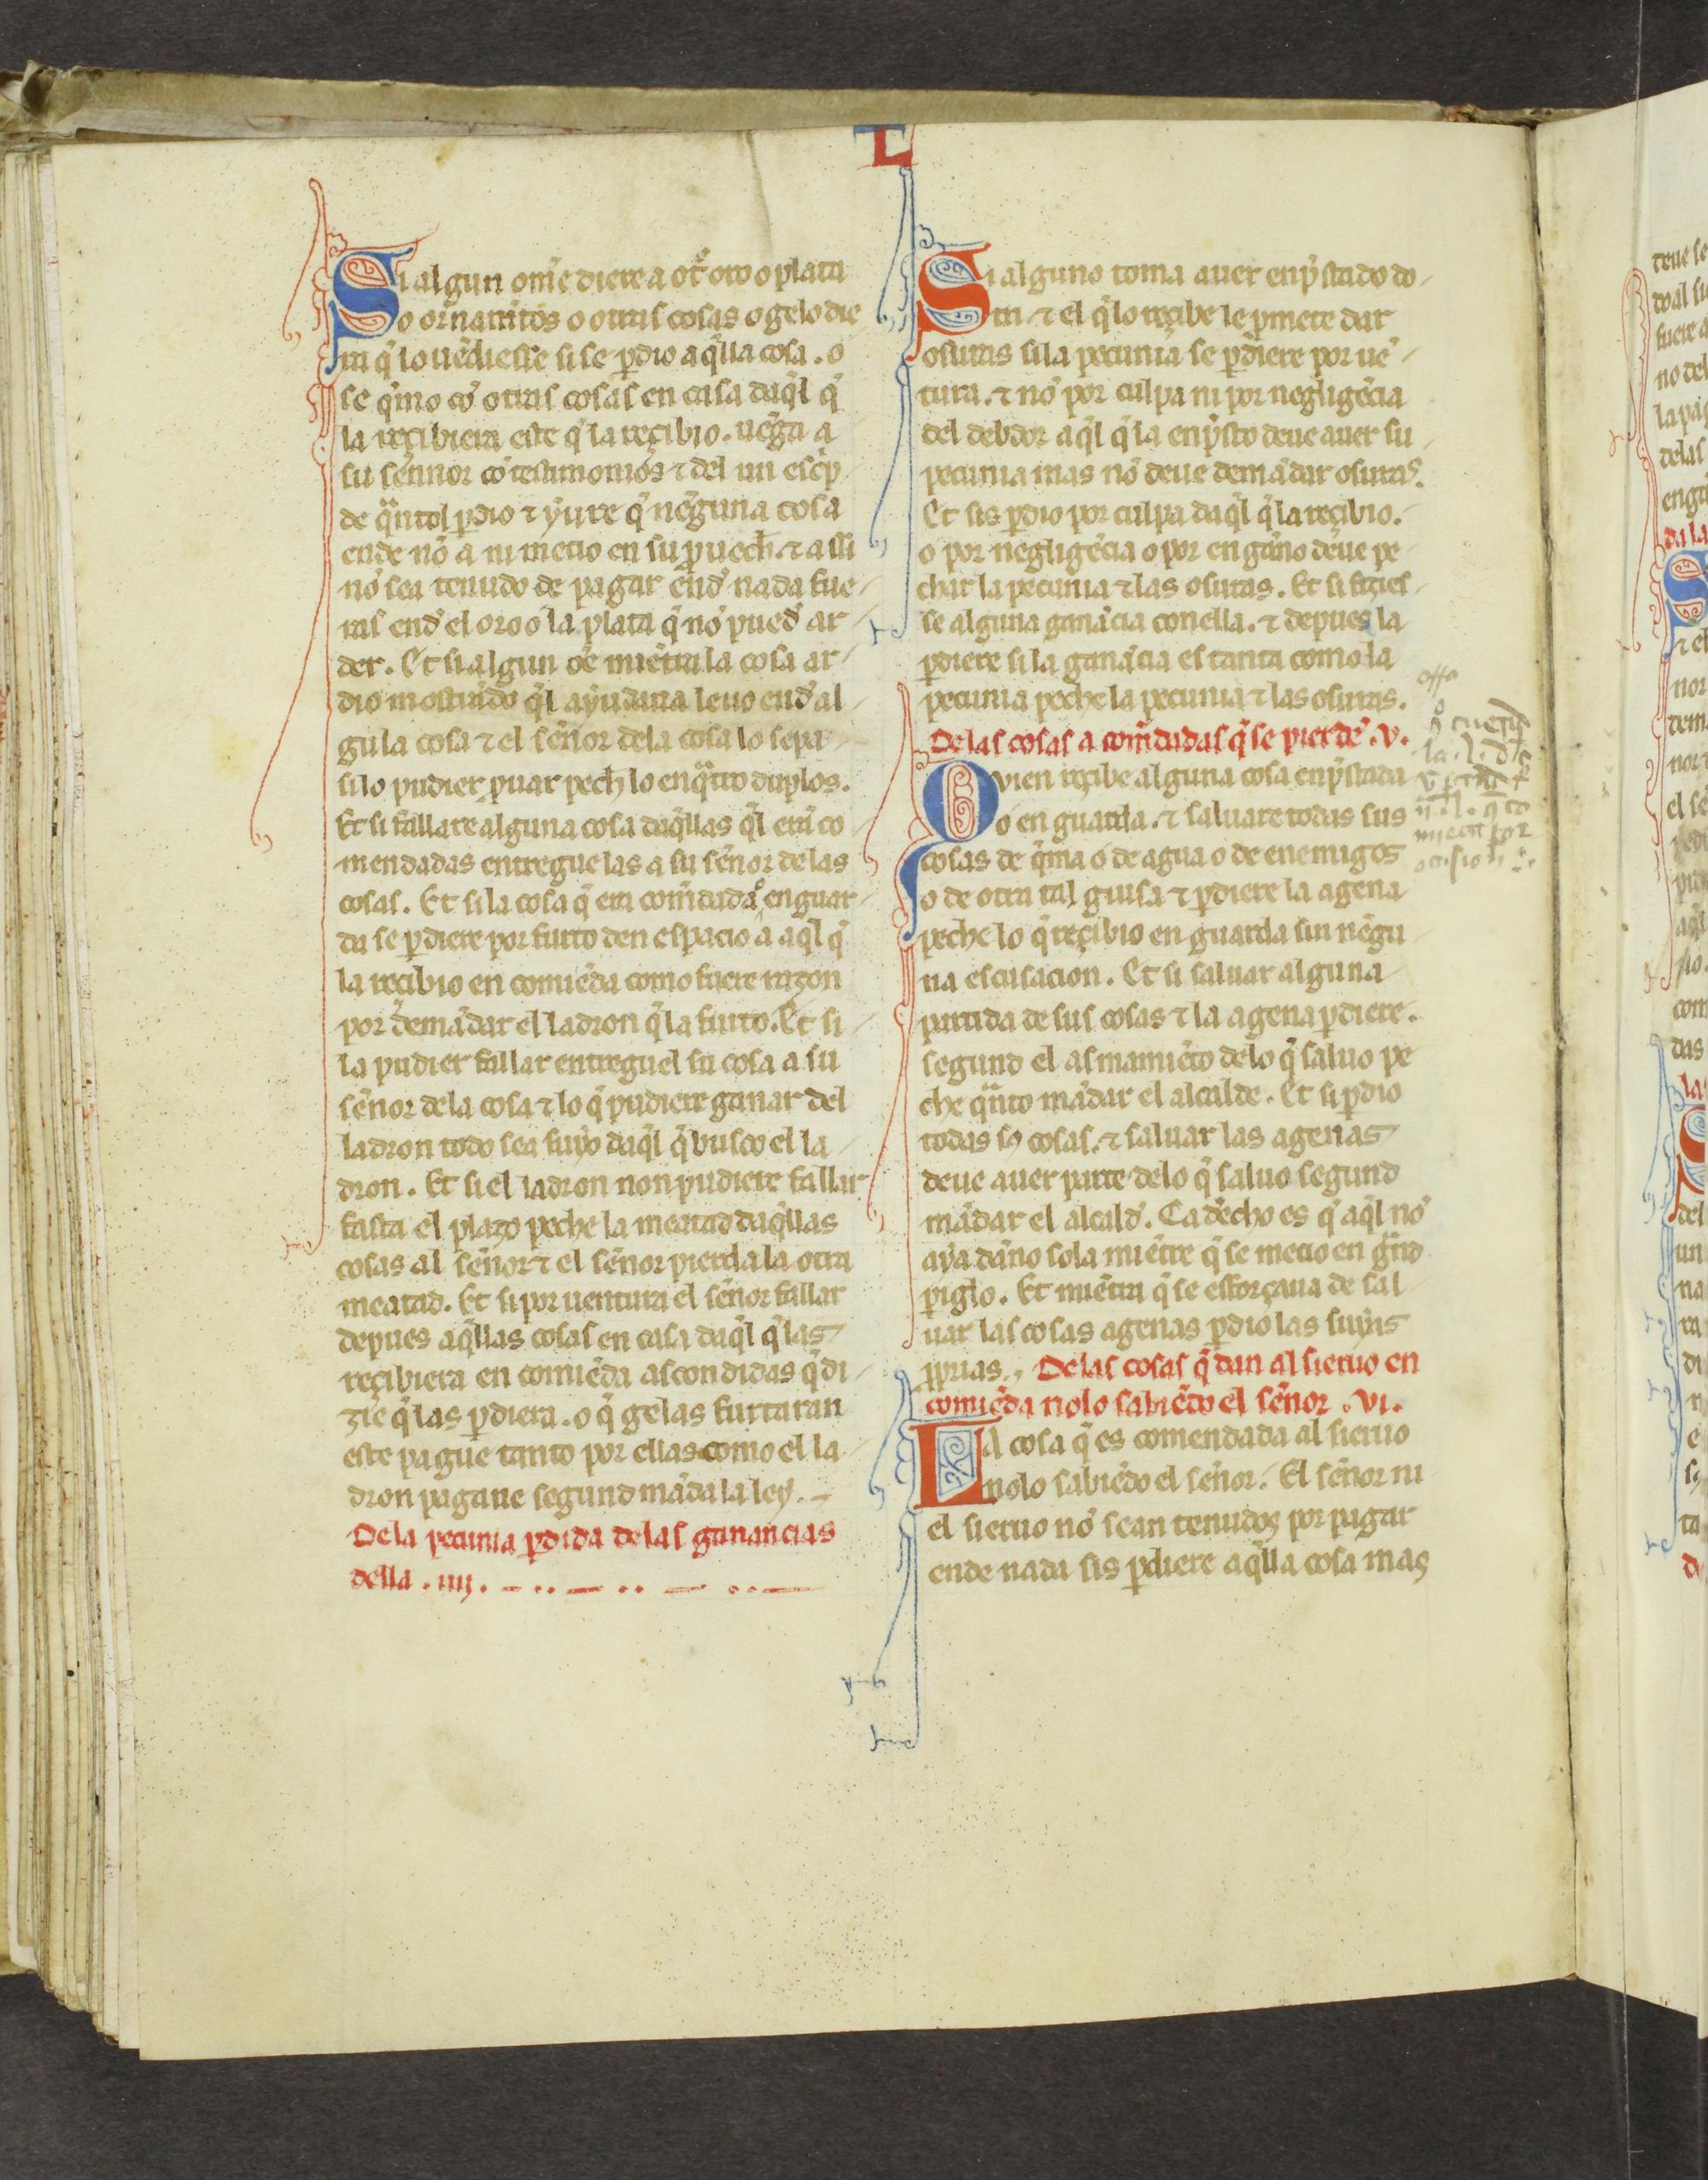 L
Si algun om̃e diere a ot̃ oro o plata
o ornam̃tos o otras cosas o gelo die
ra q̃ lo uẽdiesse si se ꝑdio aq̃lla cosa. o
se q̃mo cõ otras cosas en casa daq̃l q̃
la reçibiera este q̃ la reçibio. uẽga a
su sennor cõ testimonios ⁊ del un esc̃p
de q̃ntol ꝑdio ⁊ yure q̃ nẽguna cosa
ende nõ a ni metio en su ꝓuech̃. ⁊ assi
nõ sea tenudo de pagar end̃ nada fue
ras end̃ el oro o la plata q̃ nõ pued̃ ar
der. Et si algun õe miẽtra la cosa ar
dio mostrãdo q̃l ayudaua leuo end̃ al
gũa cosa ⁊ el señor dela cosa lo sepa
si lo pudier ꝓuar pech̃ lo en q̃tro duplos.
Et si fallare alguna cosa daq̃llas q̃l erã co
mendadas entregue las a su señor de las
cosas. Et si la cosa q̃ era com̃dada o en guar
da se ꝑdiere por furto den espacio a aq̃l q̃
la reçibio en comiẽda como fuere razon
por demãdar el ladron q̃ la furto. Et si
la pudier fallar entreguel su cosa a su
señor dela cosa ⁊ lo q̃ pudiere ganar del
ladron todo sea suyo daq̃l q̃ busco el la
dron. Et si el ladron non pudiere fallar
fasta el plazo peche la meatad daq̃llas
cosas al señor ⁊ el señor pierda la otra
meatad. Et si por uentura el señor fallar
depues aq̃llas cosas en casa daq̃l q̃ las
reçibiera en comiẽda ascondidas q̃ di
zie q̃ las ꝑdiera. o q̃ gelas furtaran
este pague tanto por ellas como el la
dron pagaue segund mãda la ley.
Dela pecunia ꝑdida delas ganancias
della .iiij.
Si alguno toma auer enp̃stado do
tri ⁊ el q̃ lo reçibe le ꝓmete dar
osuras si la pecunia se ꝑdiere por uẽ
tura. ⁊ nõ por culpa ni por negligẽcia
del debdor aq̃l q̃ la enp̃sto deue auer su
pecunia mas nõ deue demãdar osuras.
Et sis ꝑdio por culpa daq̃l q̃ la reçibio.
o por negligẽcia o por engãno deue pe
char la pecunia ⁊ las osuras. Et si fizies
se alguna ganãcia con ella. ⁊ depues la
ꝑdiere si la ganãcia es tanta como la
pecunia peche la pecunia ⁊ las osuras.
De las cosas a com̃dadas q̃ se pierdẽ .v.
Qvien reçibe alguna cosa enp̃stada
o en guarda. ⁊ saluare todas sus
cosas de q̃ma o de agua o de enemigos
o de otra tal guisa ⁊ ꝑdiere la agena
peche lo q̃ reçibio en guarda sin nẽgu
na escusacion. Et si saluar alguna
partida de sus cosas ⁊ la agena ꝑdiere.
segund el asmamiẽto delo q̃ saluo pe
che q̃nto mãdar el alcalde. Et si ꝑdio
todas sꝰ cosas. ⁊ saluar las agenas
deue auer parte delo q̃ saluo segund
mãdar el alcald̃. Ca derecho es q̃ aq̃l nõ
aya dãno sola miẽtre q̃ se metio en g̃nd
ꝑiglo. Et miẽtra q̃ se esforçaua de sal
uar las cosas agenas ꝑdio las suyas
ꝓprias. De las cosas q̃ dan al sieruo en
comiẽda nolo sabiẽdo el señor .vi.
La cosa q̃ es comendada al sieruo
nolo sabiẽdo el señor. El señor ni
el sieruo nõ sean tenudos por pagar
ende nada sis ꝑdiere aq̃lla cosa mas